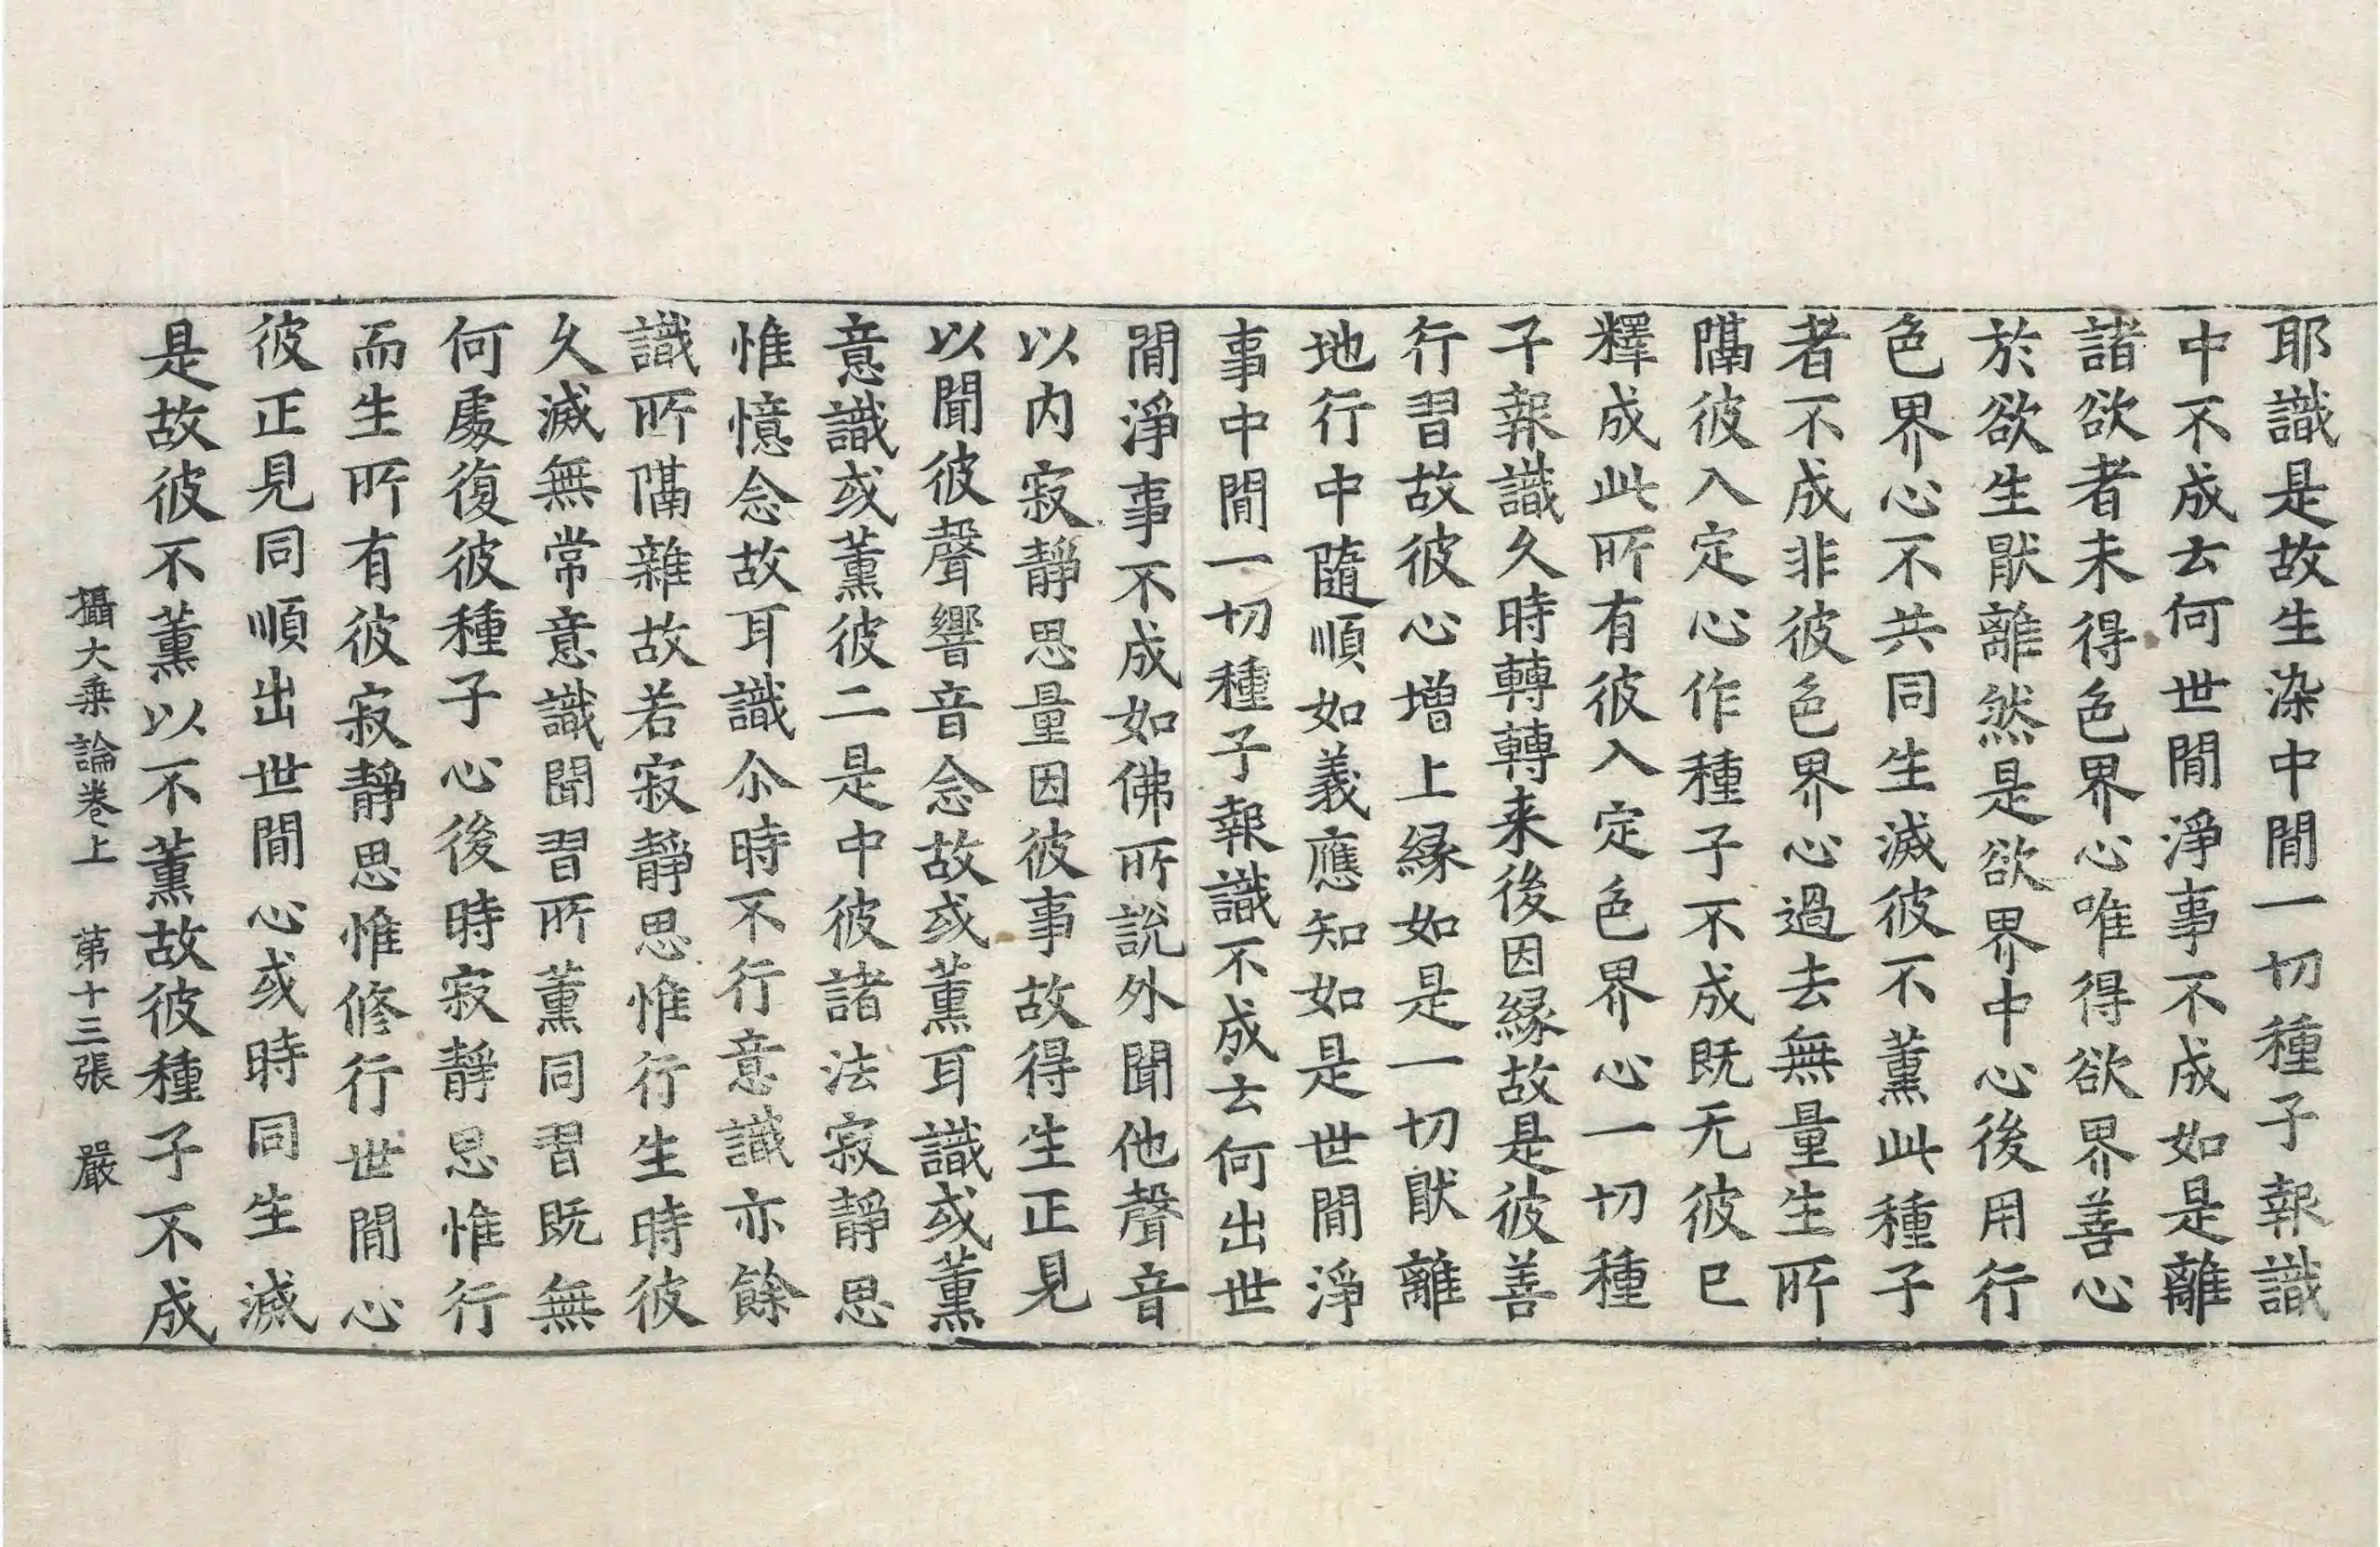 耶識是故生染中閒一切種子報識
中不成去何世閒淨事不成如是離
諸欲者未得色界心唯得欲界善心
於欲生猒離然是欲界中心後用行
色界心不共同生滅彼不薰此種子
者不成非彼色界心過去無量生所
隔彼入定心作種子不成既无彼已
釋成此所有彼入定色界心一切種
子報識久時轉轉来後因縁故是彼善
行習故彼心增上縁如是一切猒離
地行中隨順如義應知如是世閒淨
事中閒一切種子報識不成去何出世
閒淨事不成如佛所說外聞他聲音
以內寂靜思量因彼事故得生正見
以聞彼聲響音念故或薰耳識或薰
意識或薰彼二是中彼諸法寂靜思
惟憶念故耳識尒時不行意識亦餘
識所隔雜故若寂靜思惟行生時彼
久滅無常意識聞習所薰同習既無
何處復彼種子心後時寂靜思惟行
而生所有彼寂靜思惟修行世閒心
彼正見同順出世閒心或時同生滅
是故彼不薰以不薰故彼種子不成
攝大乗論卷上　第十三張　嚴